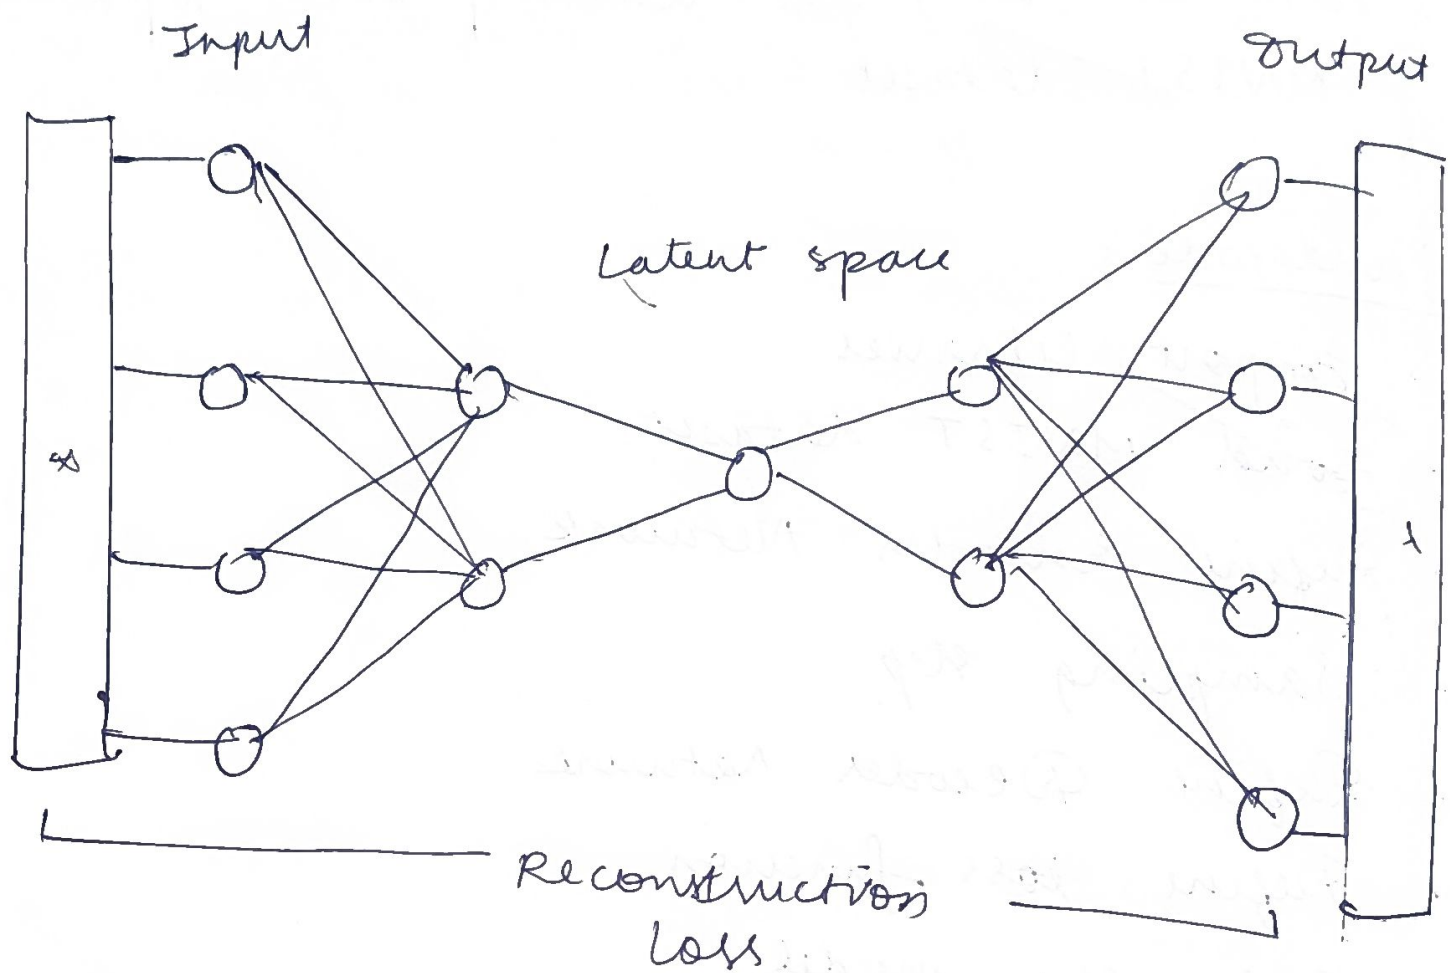 Input
Output
Latent space
x
Reconstruction
Loss